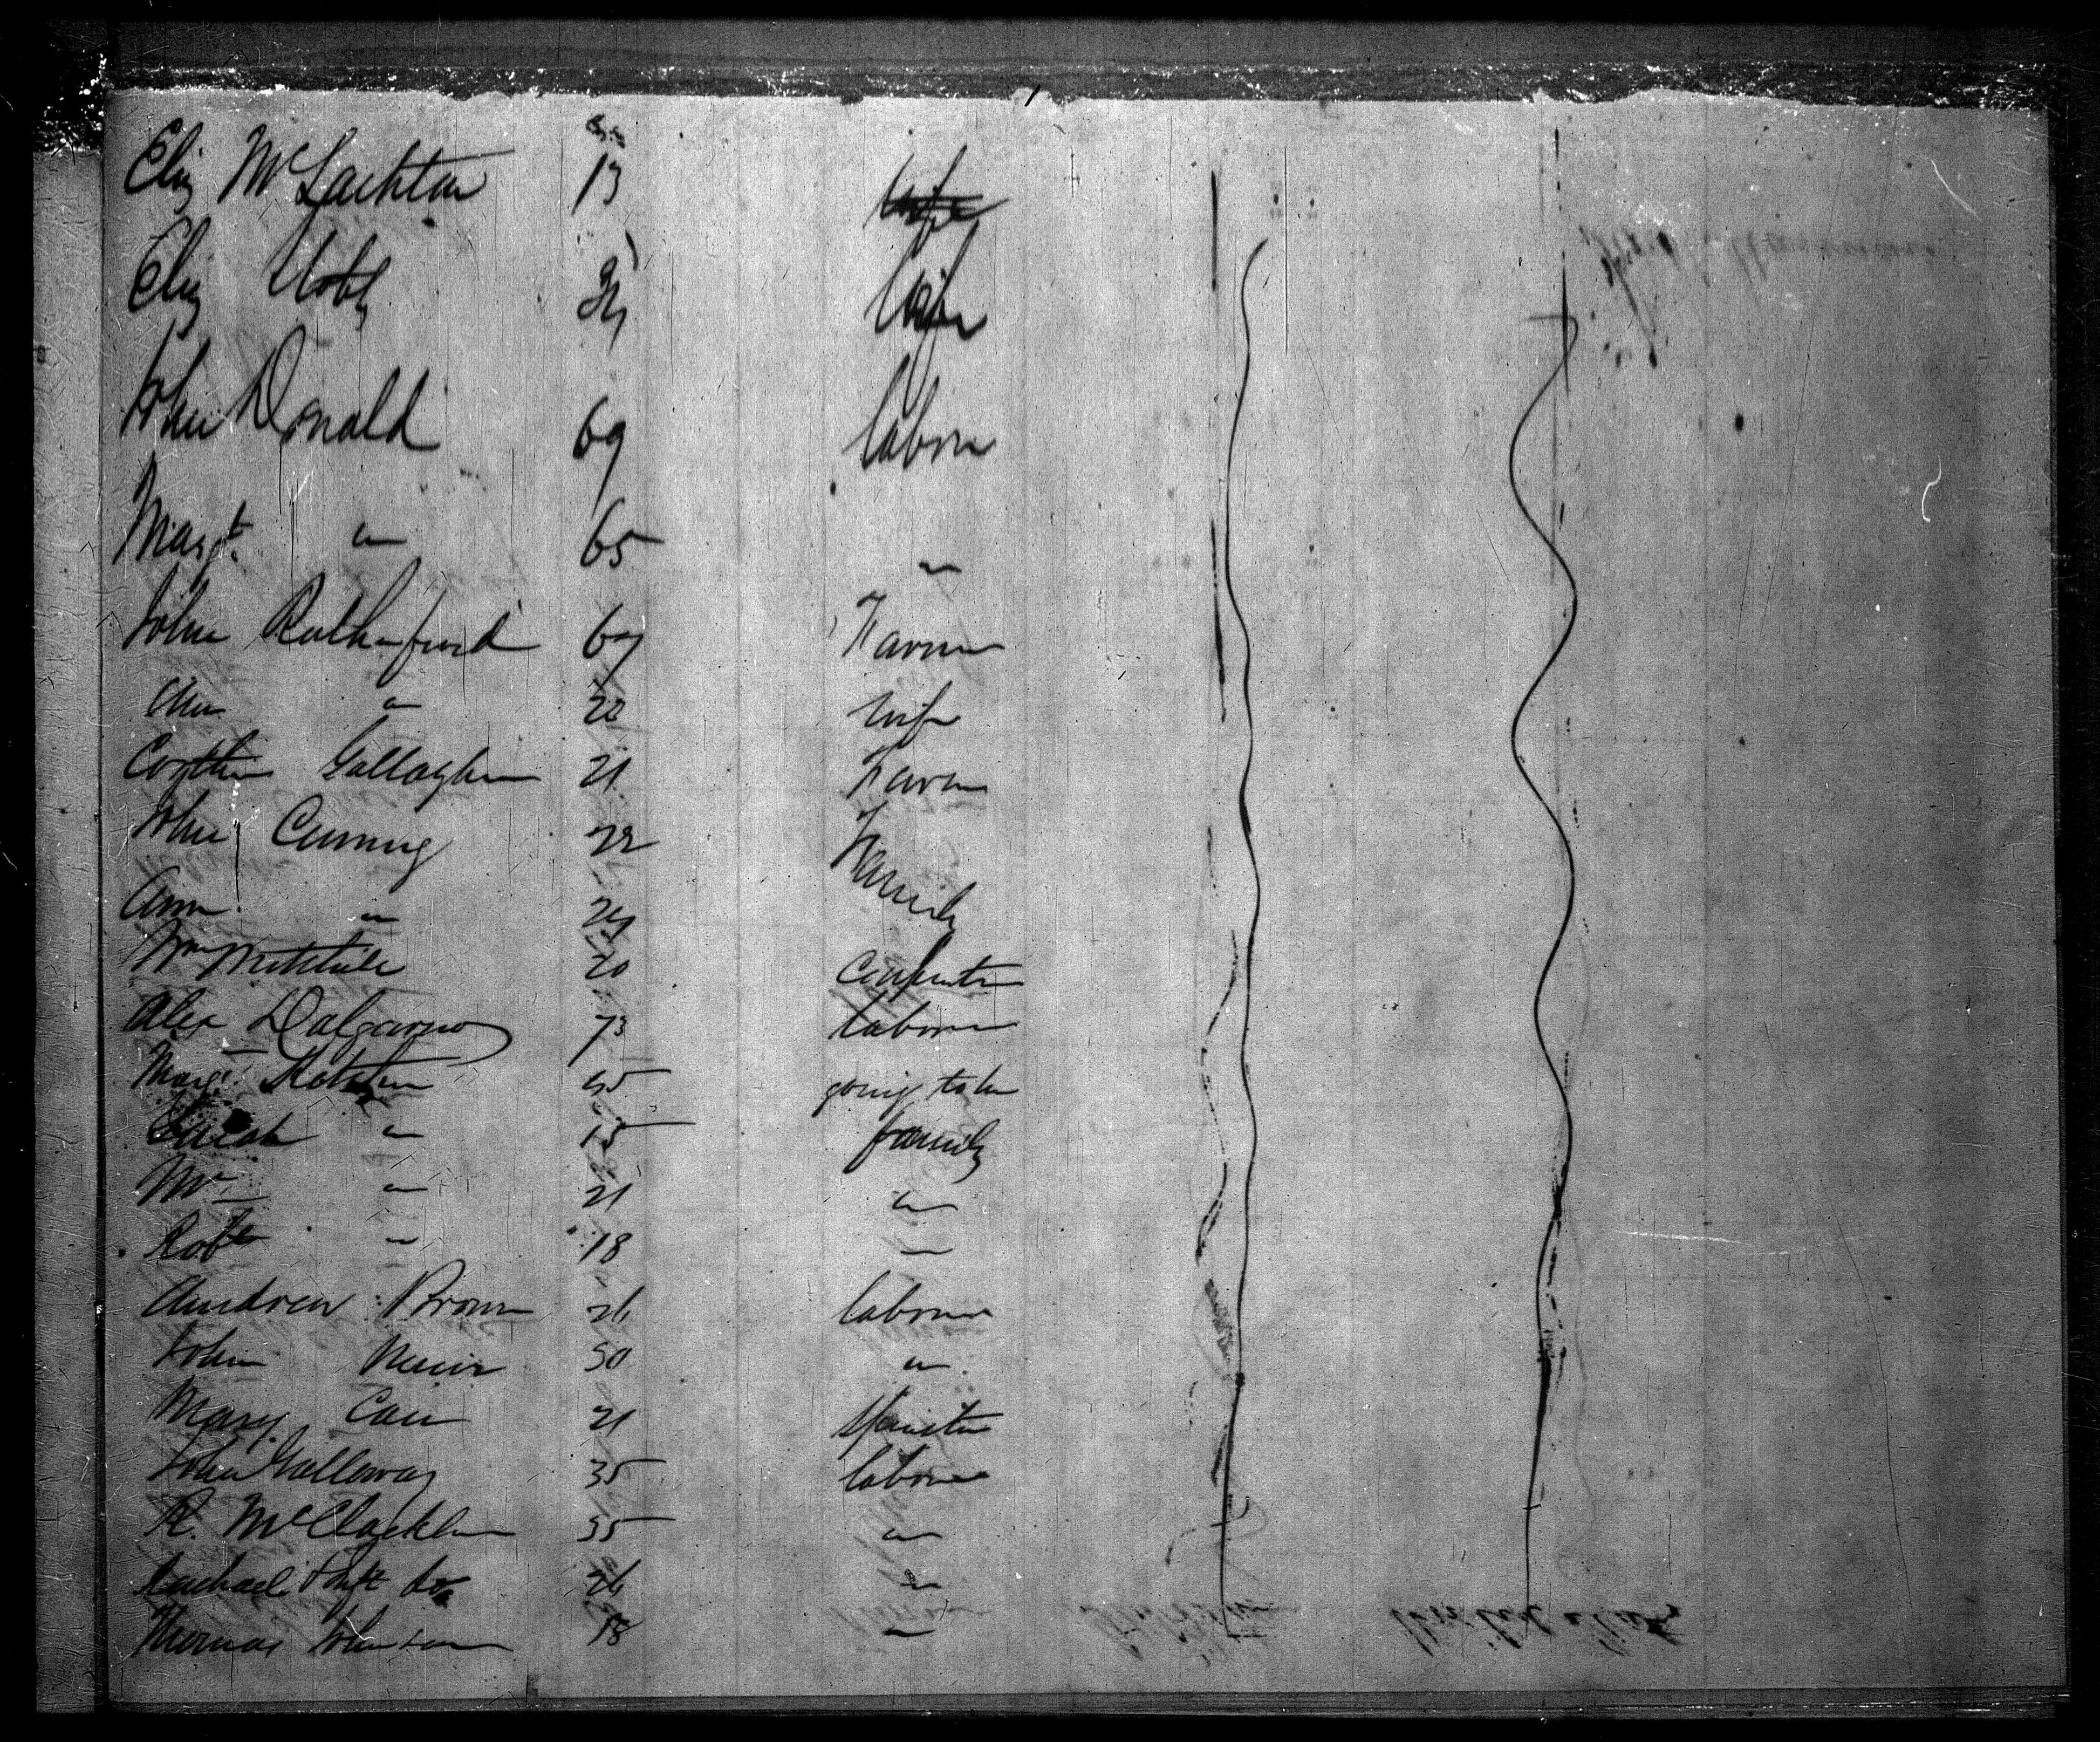 Eliz McLachlan 13
Eliz 24 Wife
John Donald 69 labor
Margt. " 65 "
John Rutherford 67 Farmer
Ann " 22 wife
Gallagher 21 Farm
John Cuming 22 Family
Ann " 24
Wm Mitchell 20 Carpenter
Alex Dalgarno 73 laborer
Margt. 45 going to her
Sarah " 15 family
Wm " 21 "
Robt " 18 "
Andrew Brown 26 laborer
John Muir 50 "
Mary Cain 21 Spinster
John Galloway 35 laborer
R. McClacklin 35 "
Rachael do 26 "
Thomas Johnson 18 "